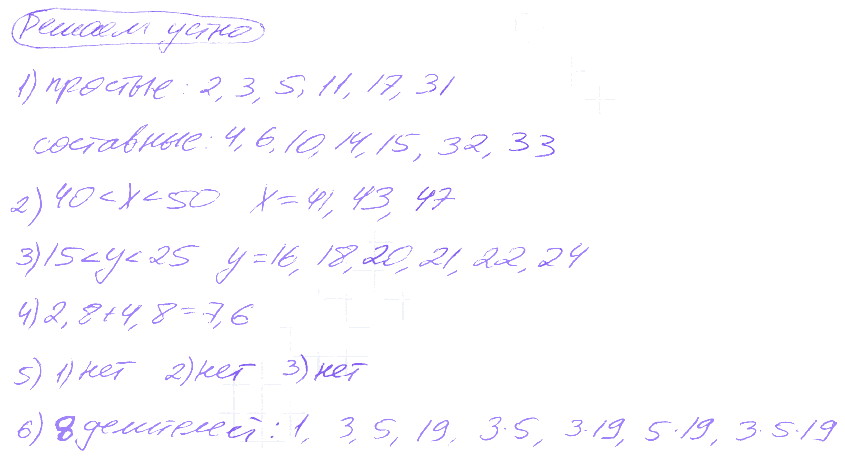 Решаем устно
1) простые: 2, 3, 5, 11, 17, 31
составные: 4, 6, 10, 14, 15, 32, 33
2) 40 < x < 50 x = 41, 43, 47
3) 15 < y < 25 y = 16, 18, 20, 21, 22, 24
4) 2,8 + 4,8 = 7,6
5) 1) нет 2) нет 3) нет
6) 8 делителей: 1, 3, 5, 19, 3·5, 3·19, 5·19, 3·5·19